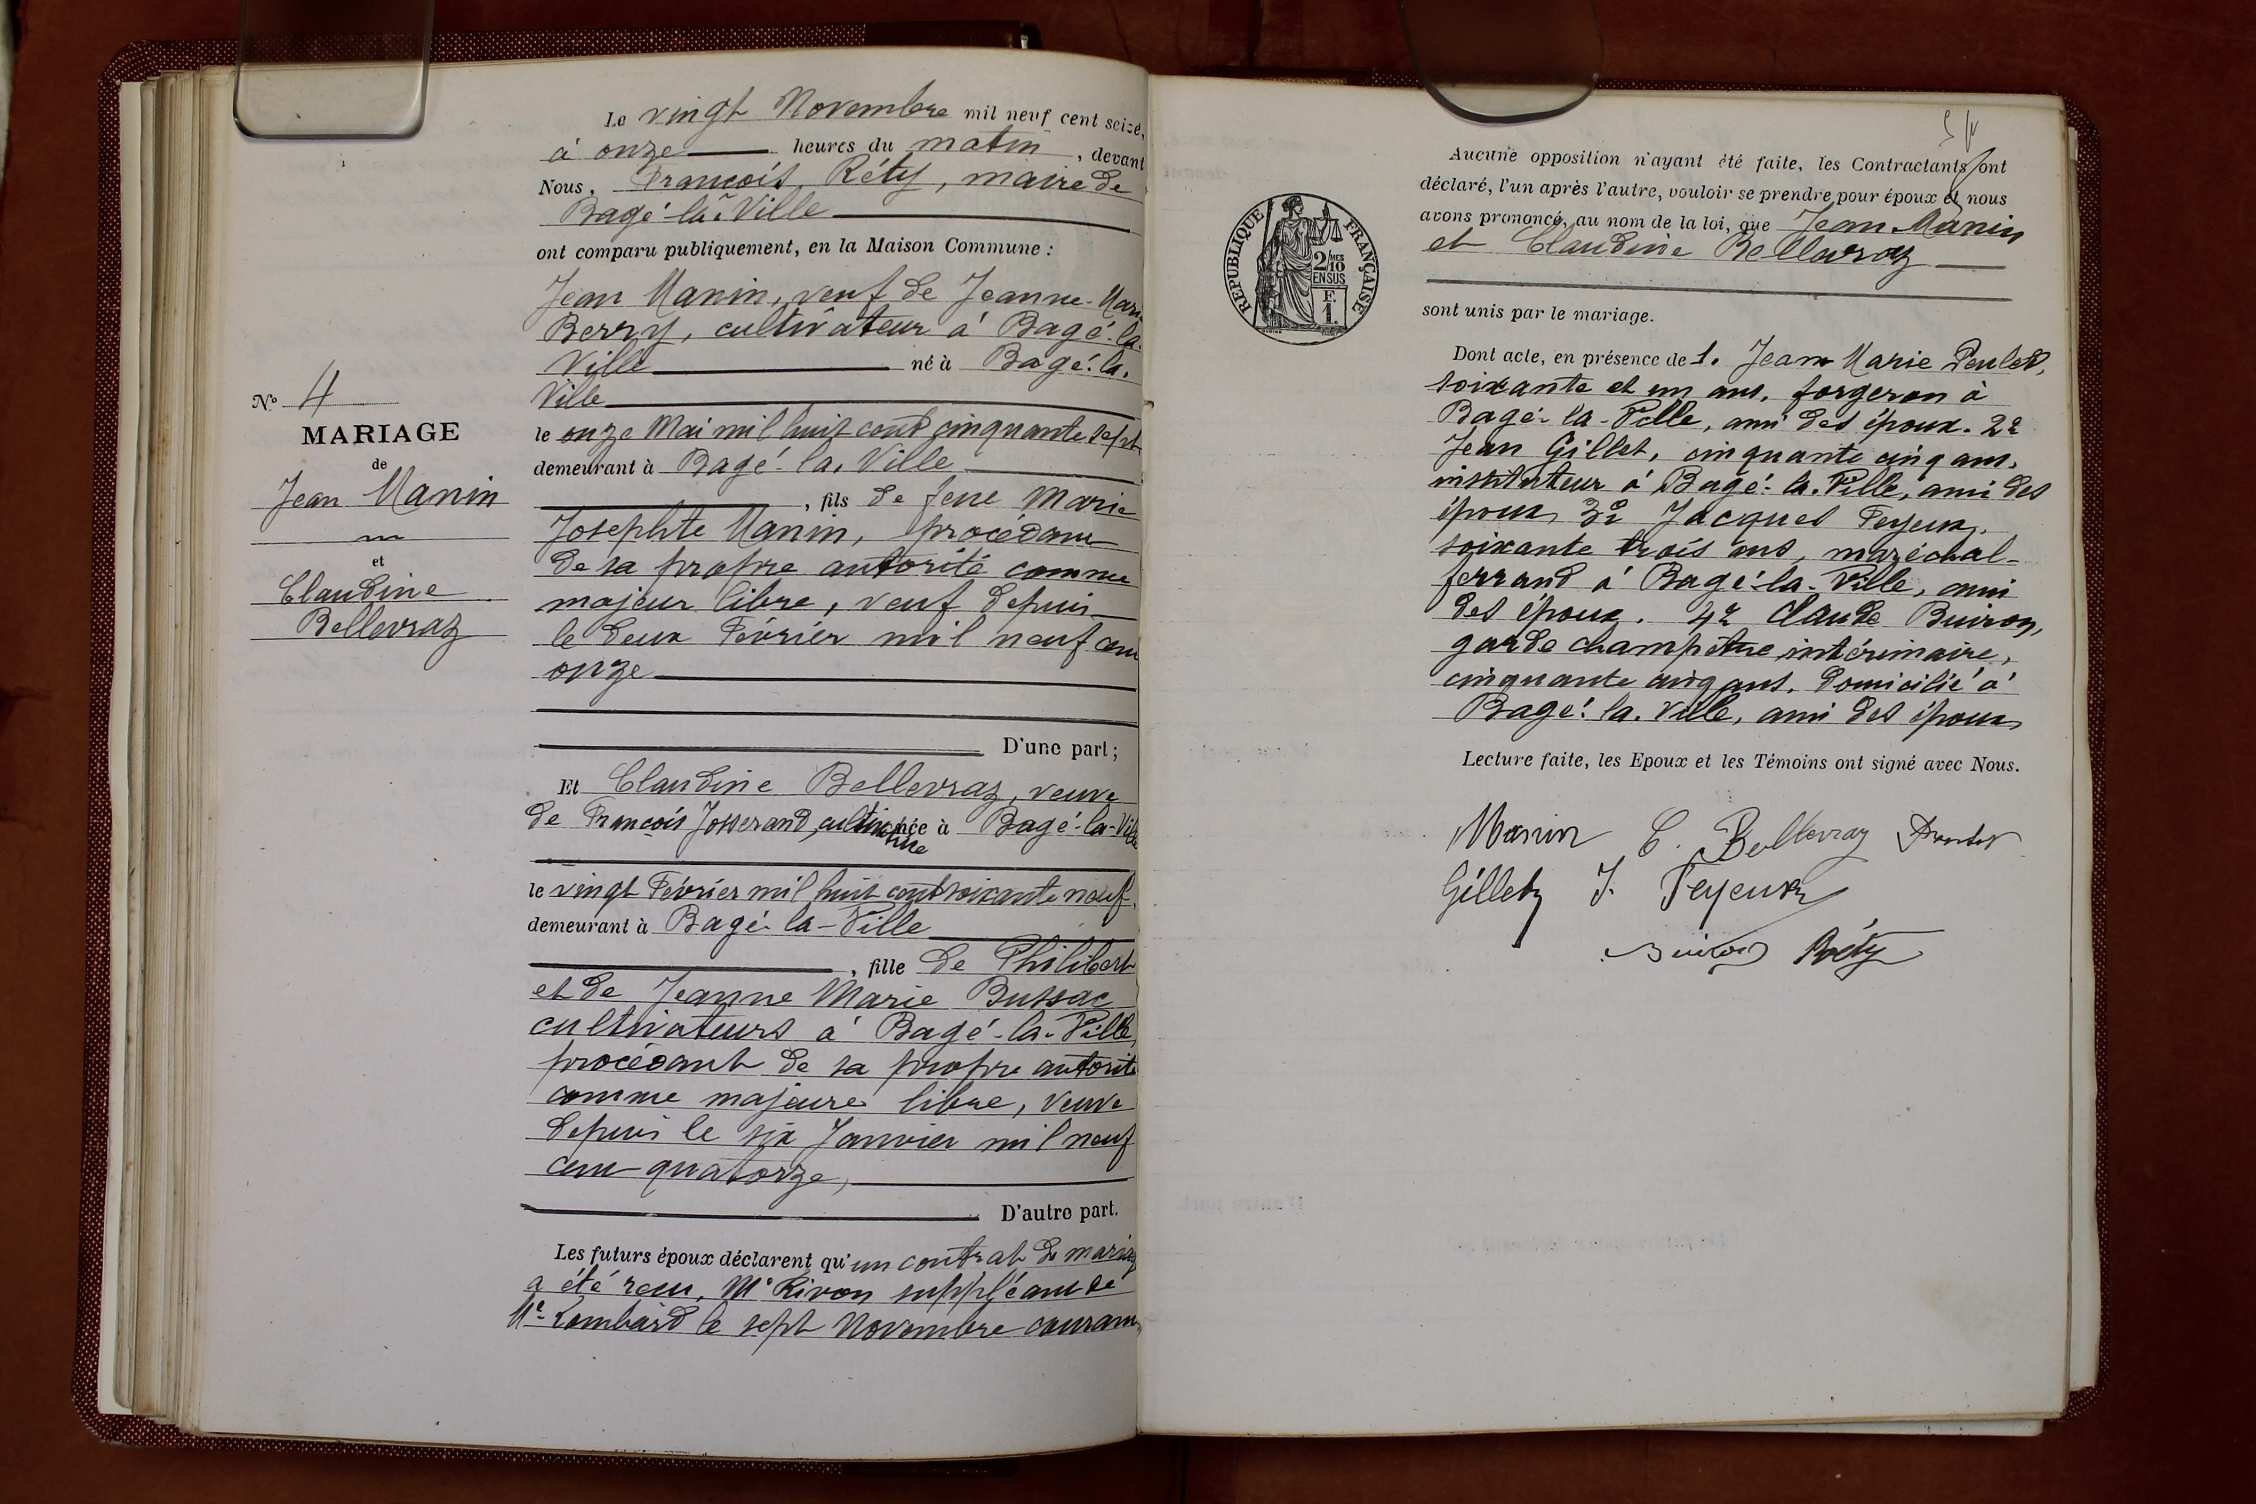 Le vingt Novembre mil neuf cent seize,
à onze heures du matin, devant
Nous, François Réty, maire de
Bagé-la-Ville
ont comparu publiquement, en la Maison Commune :
Jean Manin, veuf de Jeanne-Marie
Berry, cultivateur à Bagé-la-
Ville né à Bagé-la-
Ville
le onze Mai mil huit cent cinquante sept
demeurant à Bagé-la-Ville
, fils de feue Marie
Josephte Manin, procédant
de sa propre autorité comme
majeur libre, veuf depuis
le deux Février mil neuf cent
onze
D'une part ;
N° 4
MARIAGE
de
Jean Manin
et
Claudine
Bellevraz
Et Claudine Bellevraz, veuve
de François Josserand, cultivatrice née à Bagé-la-Ville
le vingt Février mil huit cent soixante neuf,
demeurant à Bagé-la-Ville
, fille de Philibert
et de Jeanne Marie Bussac
cultivateurs à Bagé-la-Ville,
procédant de sa propre autorité
comme majeure libre, veuve
depuis le six Janvier mil neuf
cent quatorze,
D'autre part.
Les futurs époux déclarent qu'un contrat de mariage
a été reçu, Me Rivon suppléant de
Me Lombard le sept Novembre courant
RÉPUBLIQUE FRANÇAISE
2/10 MES
EN SUS
F.
1.
Aucune opposition n'ayant été faite, les Contractants ont
déclaré, l'un après l'autre, vouloir se prendre pour époux et nous
avons prononcé, au nom de la loi, que Jean Manin
et Claudine Bellevraz
sont unis par le mariage.
Dont acte, en présence de 1. Jean Marie
soixante et un ans, forgeron à
Bagé-la-Ville, ami des époux. 2°
Jean Gillet, cinquante cinq ans,
instituteur à Bagé-la-Ville, ami des
époux, 3° Jacques Feyeux,
soixante trois ans, maréchal-
ferrand à Bagé-la-Ville, ami
des époux. 4° Claude Buiron,
garde champêtre intérimaire,
cinquante cinq ans, domicilié à
Bagé-la-Ville, ami des époux
Lecture faite, les Epoux et les Témoins ont signé avec Nous.
Manin C. Bellevray
Gillet J. Feyeux
Buiron Réty